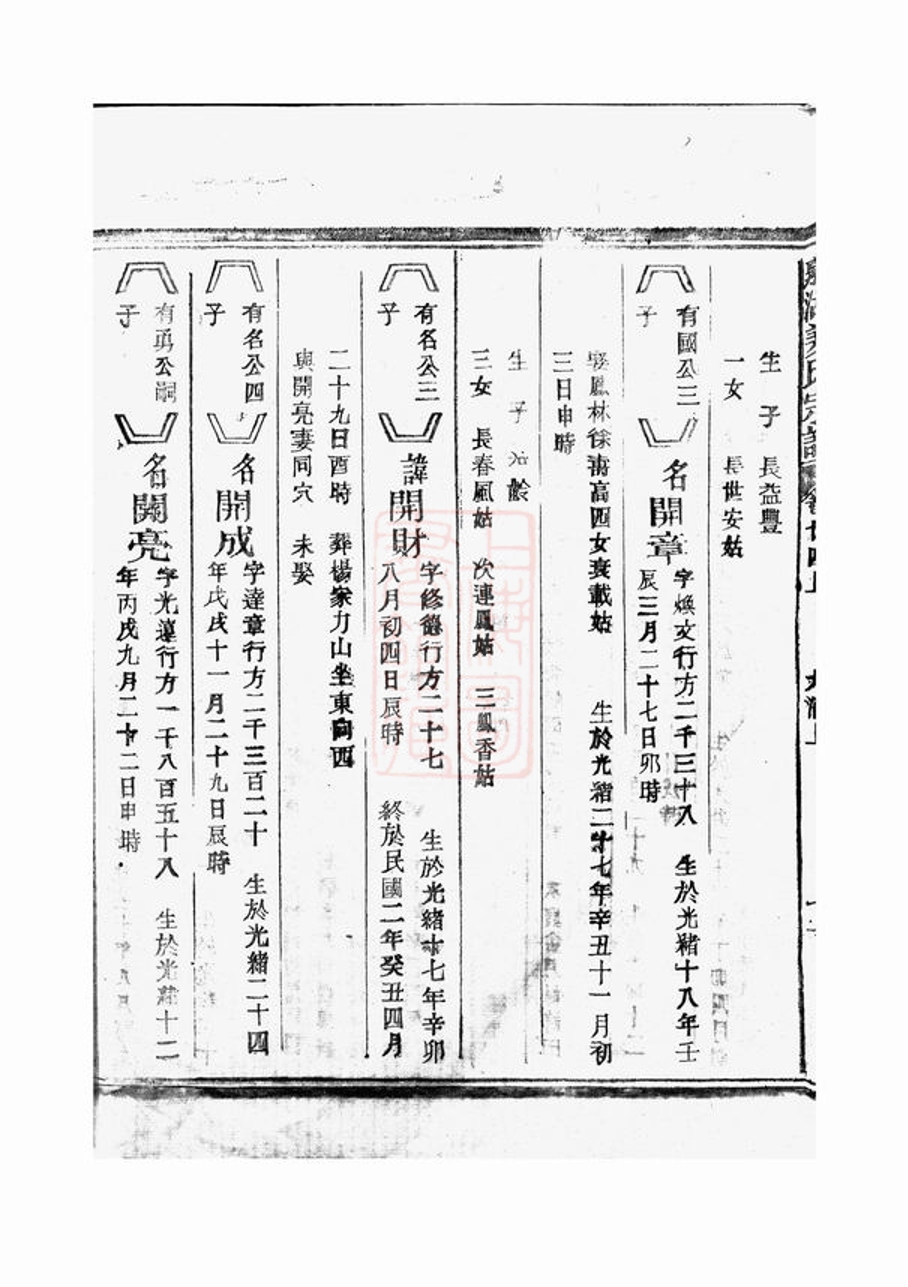 生子 長益豐
一女 長世安姑
有國公三
子
名開章
字煥文行方二千三十八 生於光緒十八年壬
辰三月二十七日卯時
娶鳳林徐壽高四女衰載姑 生於光緒二十七年辛丑十一月初
三日申時
生子
三女 長春風姑 次連鳳姑 三鳳香姑
有名公三
子
諱開財
字修德行方二十七 生於光緒十七年辛卯
八月初四日辰時 終於民國二年癸丑四月
二十九日酉時 葬楊家力山坐東向西
與開亮妻同穴 未娶
有名公四
子
名開成
字達章行方二千三百二十 生於光緒二十四
年戊戌十一月二十九日辰時
有勇公嗣
子
名開亮
字光達行方一千八百五十八 生於光緒十二
年丙戌九月二十二日申時